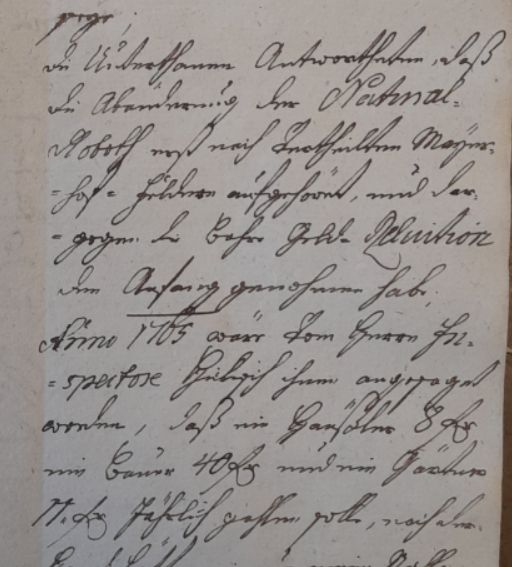 die Unterthanen Antwortheten, daß
die Abänderung der Natural-
Roboth erst nach vertheilten Mayer-
-hof- Feldern aufgehöret, und dar-
-gegen die Geld- Reluition
den Anfang genohmen habe.
Anno 1765 wäre vom Herrn In-
-spectore ihnen angesaget
worden, daß ein Häusler 8 fr
ein Bauer 40 fr und ein Gärtner
fr Jährlich zahlen solle, nach der-